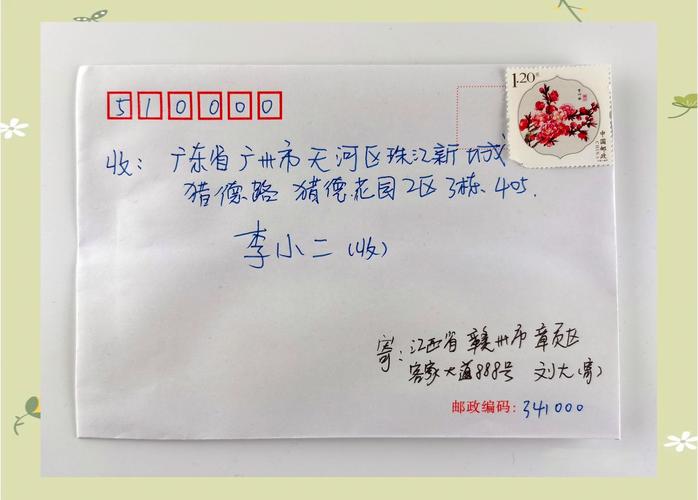 510000
1.20元
中国邮政
CHINA
收：广东省广州市天河区珠江新城
猎德路 猎德花园2区3栋.405.
李小二(收)
寄：江西省赣州市章贡区
客家大道888号 刘大(寄)
邮政编码：341000